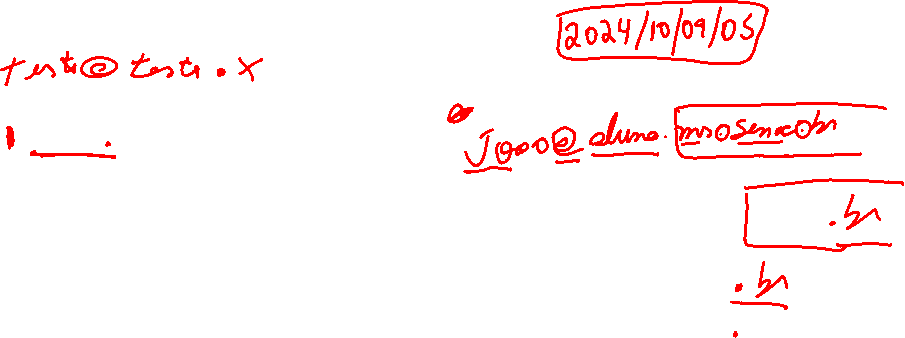 2024/10/09/05
teste@teste.x
João@aluno.ms.senac.br
.br
.br